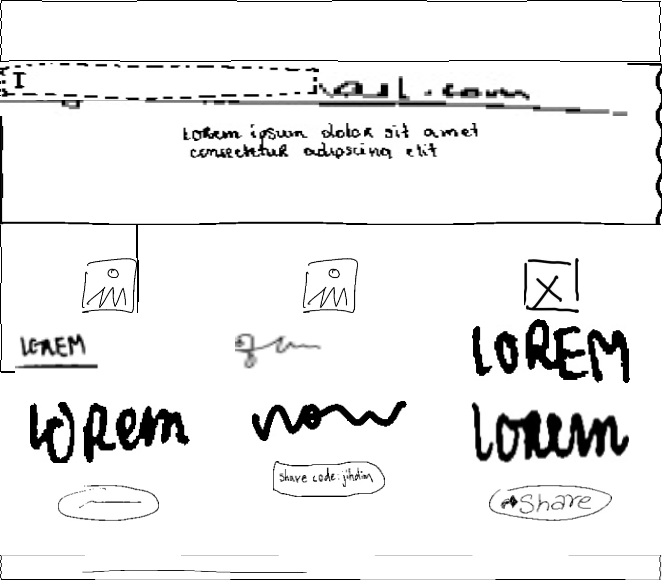 I
Lorem ipsum dolor sit amet
consectetur adipscing elit
LOREM
LOREM
lorem
now
lorem
share code: jihdim
Share